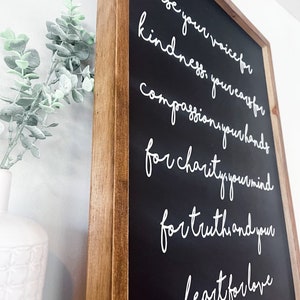 use your voice for
kindness, your ears for
compassion, your hands
for charity, your mind
for truth, and your
heart for love